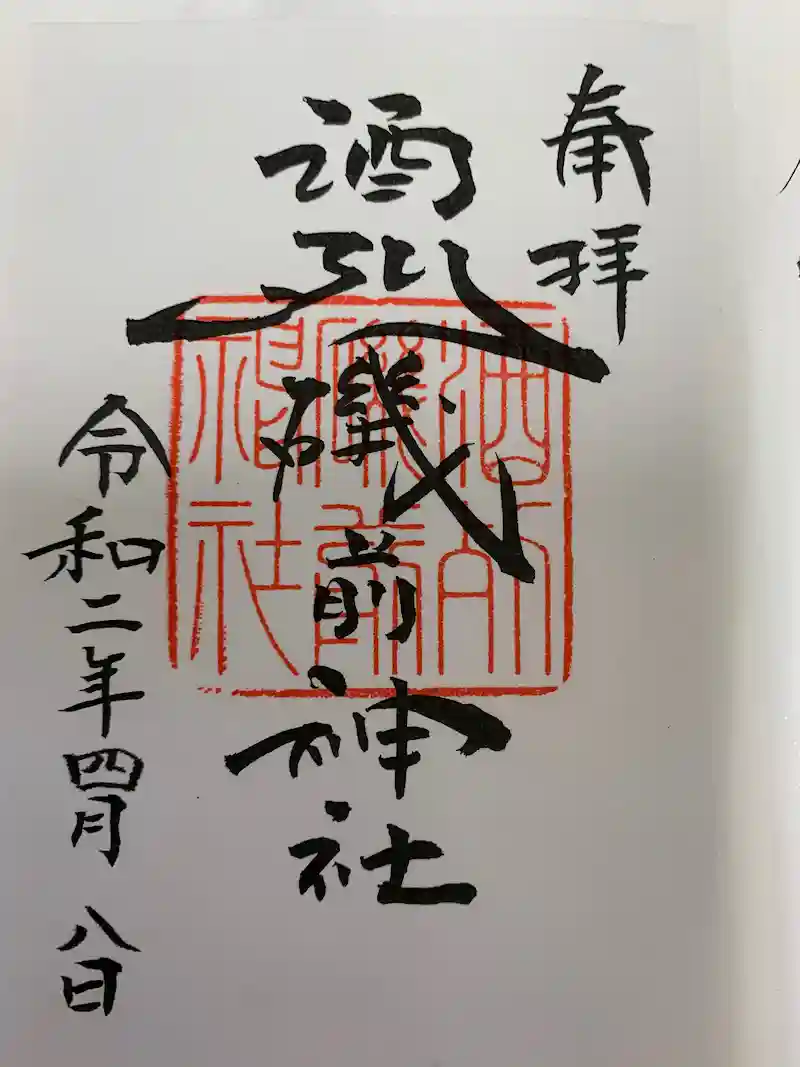 奉拝
酒列磯前神社
令和二年四月八日
酒列
磯前
神社